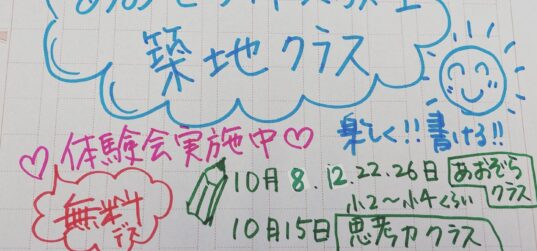 築地クラス
♡体験会実施中♡
楽しく!!書ける!!
無料デス
10月8.12.22.26日
あおぞらクラス
小2〜小4くらい
10月15日 思考力クラス